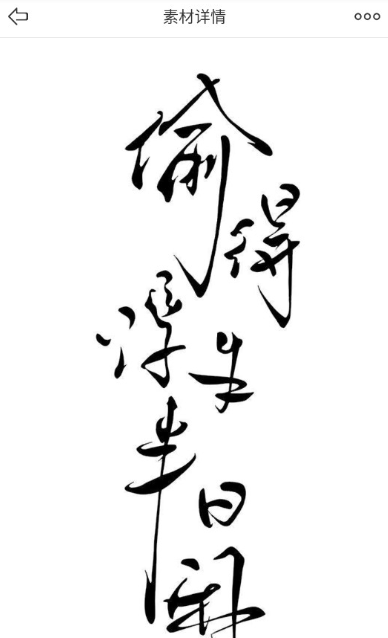 素材详情
偷得
浮生
半日
闲